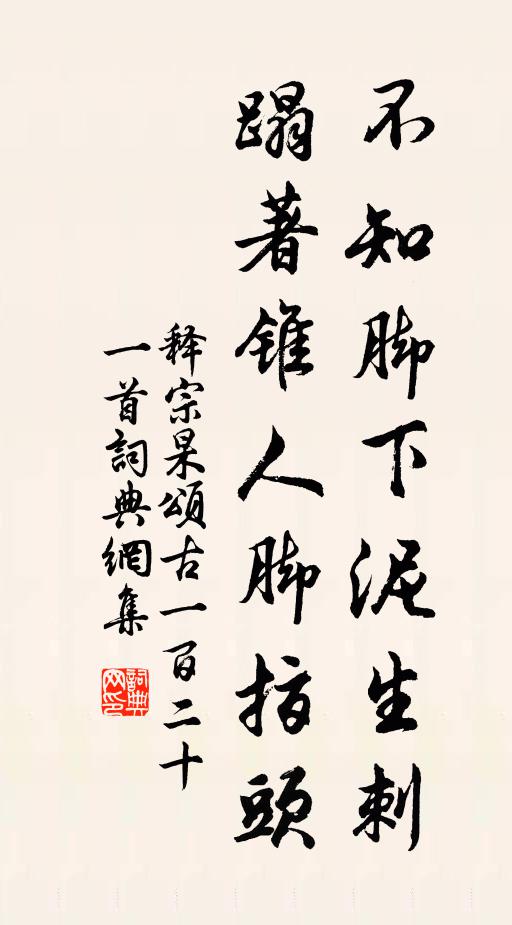 不知脚下泥生刺
蹋著锥人脚指頭
释宗杲頌古一百二十
一首詞典網集
詞典网印